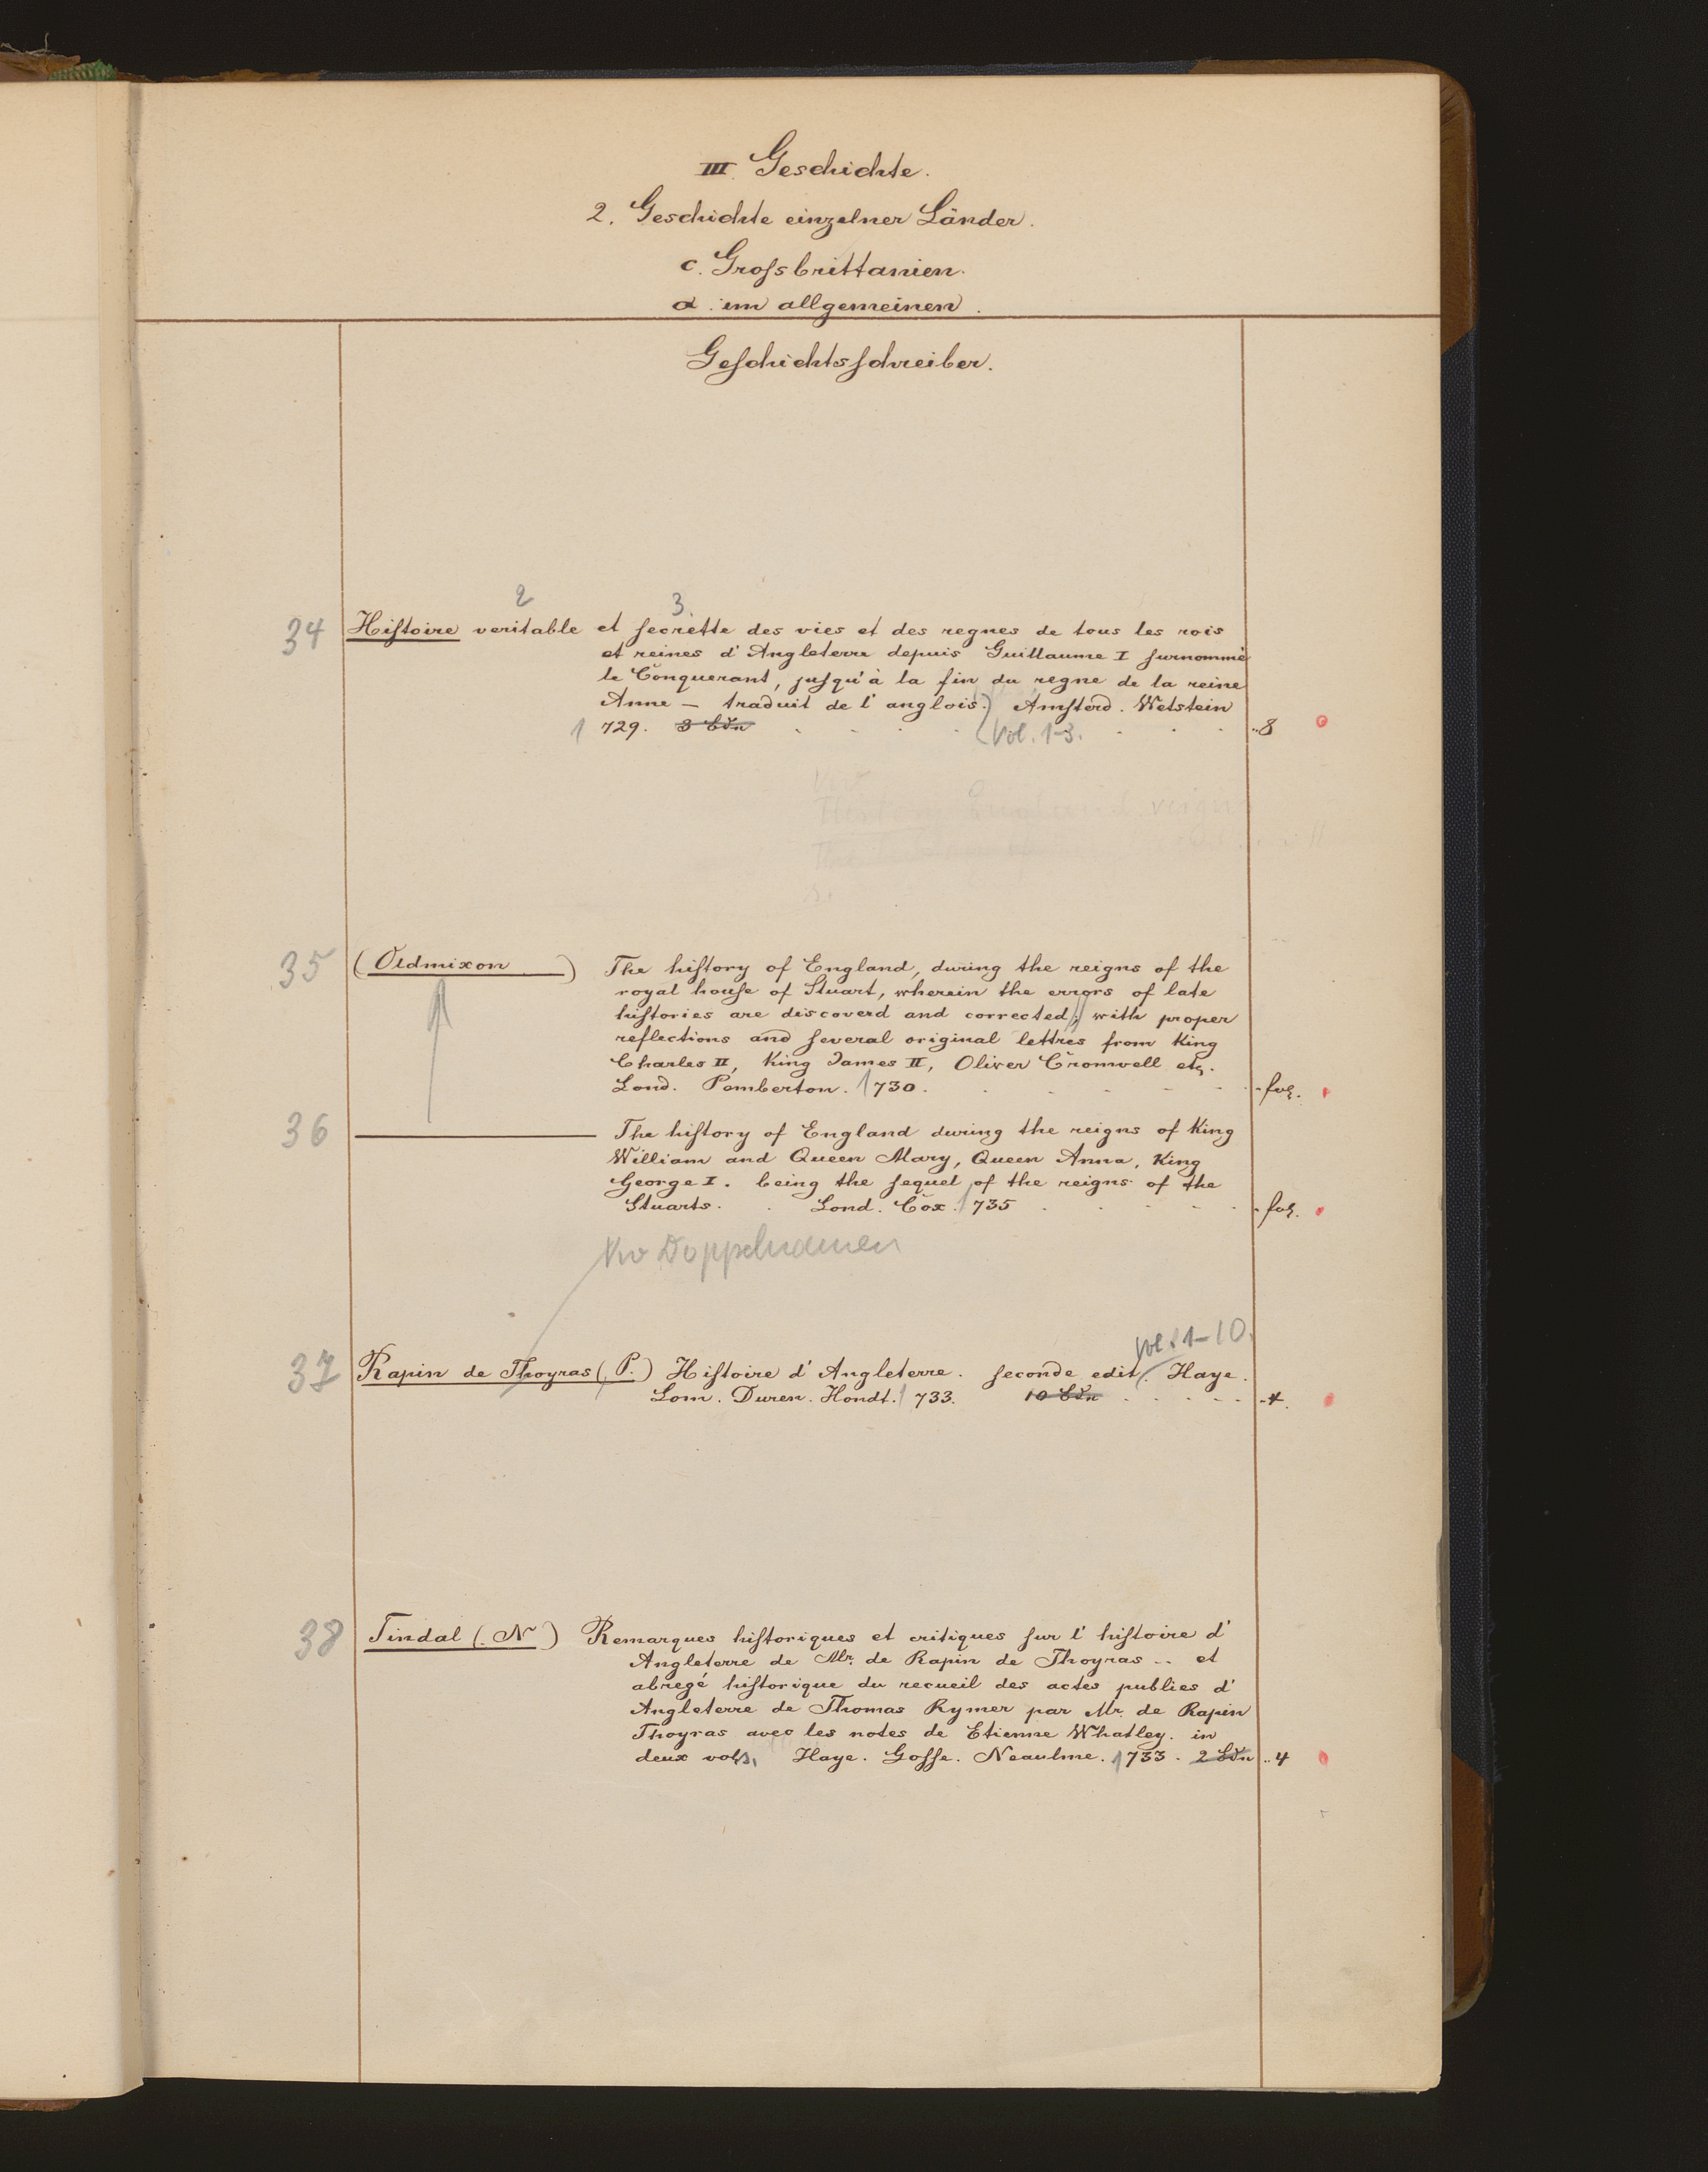 III. Geschichte.
2. Geschichte einzelner Länder.
c. Grosſbrittanien.
α. im allgemeinen.
Geſchichtsſchreiber.
2 3.
34 Hiſtoire veritable et ſecrette des vies et des regnes de tous les rois
et reines d'Angleterre depuis Guillaume I ſurnommé
le Conquerant, juſqu'à la fin du regne de la reine
Anne — traduit de l'anglois.) Amſterd. Wetstein
1729. 3 Bde (Vol. 1-3. .. 8
35 (Oldmixon) The hiſtory of England, during the reigns of the
royal houſe of Stuart, wherein the errors of late
hiſtories are discoverd and corrected; with proper
reflections and ſeveral original lettres from King
Charles II, King James II, Oliver Cromwell etc.
Lond. Pemberton. 1730. fol.
36 ——— The hiſtory of England during the reigns of King
William and Queen Mary, Queen Anna, King
George I. being the ſequel of the reigns of the
Stuarts. Lond. Cox. 1735 fol.
Kv Doppelnamen
Vol. 1-10.
37 Rapin de Thoyras (P.) Hiſtoire d'Angleterre. ſeconde edit. Haye.
Lom. Duren. Hondt. 1733. 10 Bdn 4.
38 Tindal (N) Remarques hiſtoriques et critiques ſur l'hiſtoire d'
Angleterre de Mr. de Rapin de Thoyras .. et
abregé hiſtorique du recueil des actes publies d'
Angleterre de Thomas Rymer par Mr. de Rapin
Thoyras avec les notes de Etienne Whatley. in
deux vols, Haye. Goſſe. Neaulme. 1733. 2 Bdn .. 4